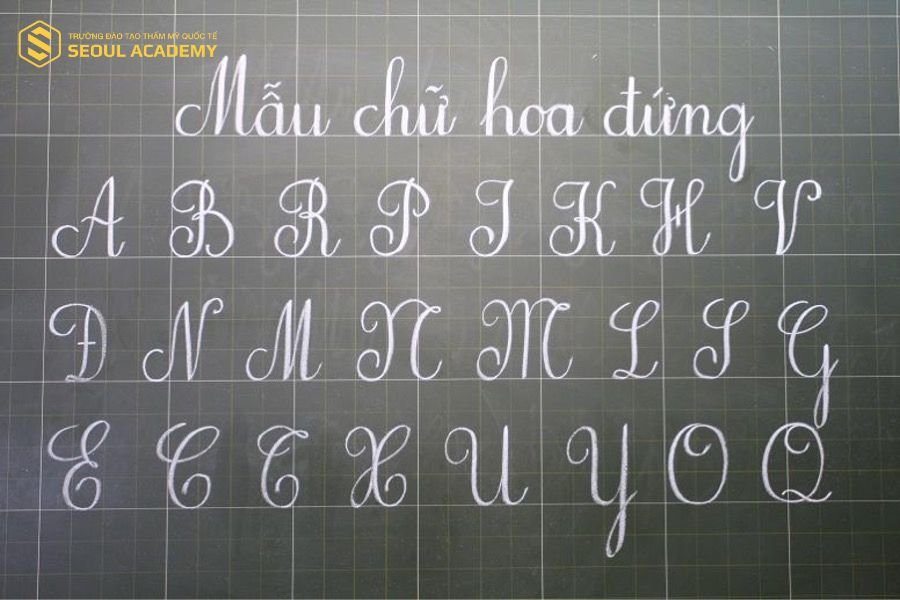 TRƯỜNG ĐÀO TẠO THẨM MỸ QUỐC TẾ
SEOUL ACADEMY
Mẫu chữ hoa đứng
A B R P I K H V
Đ N M N M L S G
E C T X U Y O Q